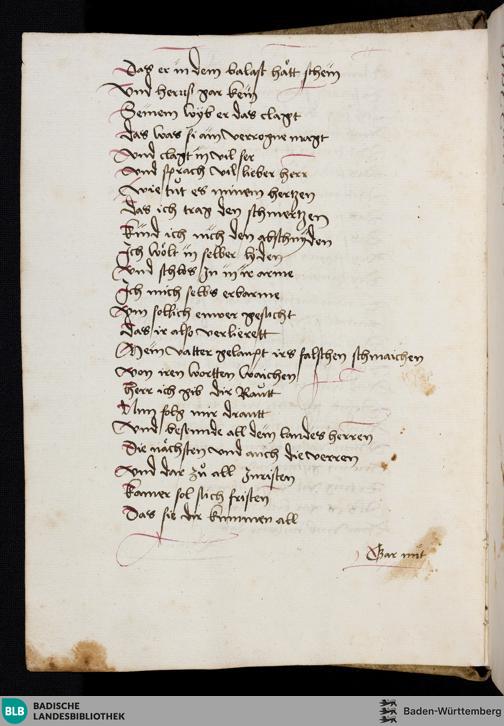 Das er in dem balast hått schein
Vnd heruß gar kein
Seinem wyb er das clagt
Das was si ain verrogne magt
Vnd clagt in vil ser
Vnd sprach vil lieber herr
Wie tůt es minem hertzen
Das ich trag den schmertzen
Künd ich üch den abschnyden
Ich wölt in selber lyden
Vnd schlos In in ir arme
Ich mich selbs erbarme
Vm sollich ewer gesicht
Das ir also verlierett
Mein vatter gelaupt irs falschen schmaichen
Von iren wortten waichen
Herr ich gib dir Rautt
Nun folg mir drautt
Vnd besennde all dein landes herren
Die nächsten vnd auch die verren
Vnd dar zů all Juristen
Kainer sol sich fristen
Das sie dir kummen all
Gar mit
BLB BADISCHE LANDESBIBLIOTHEK
Baden-Württemberg